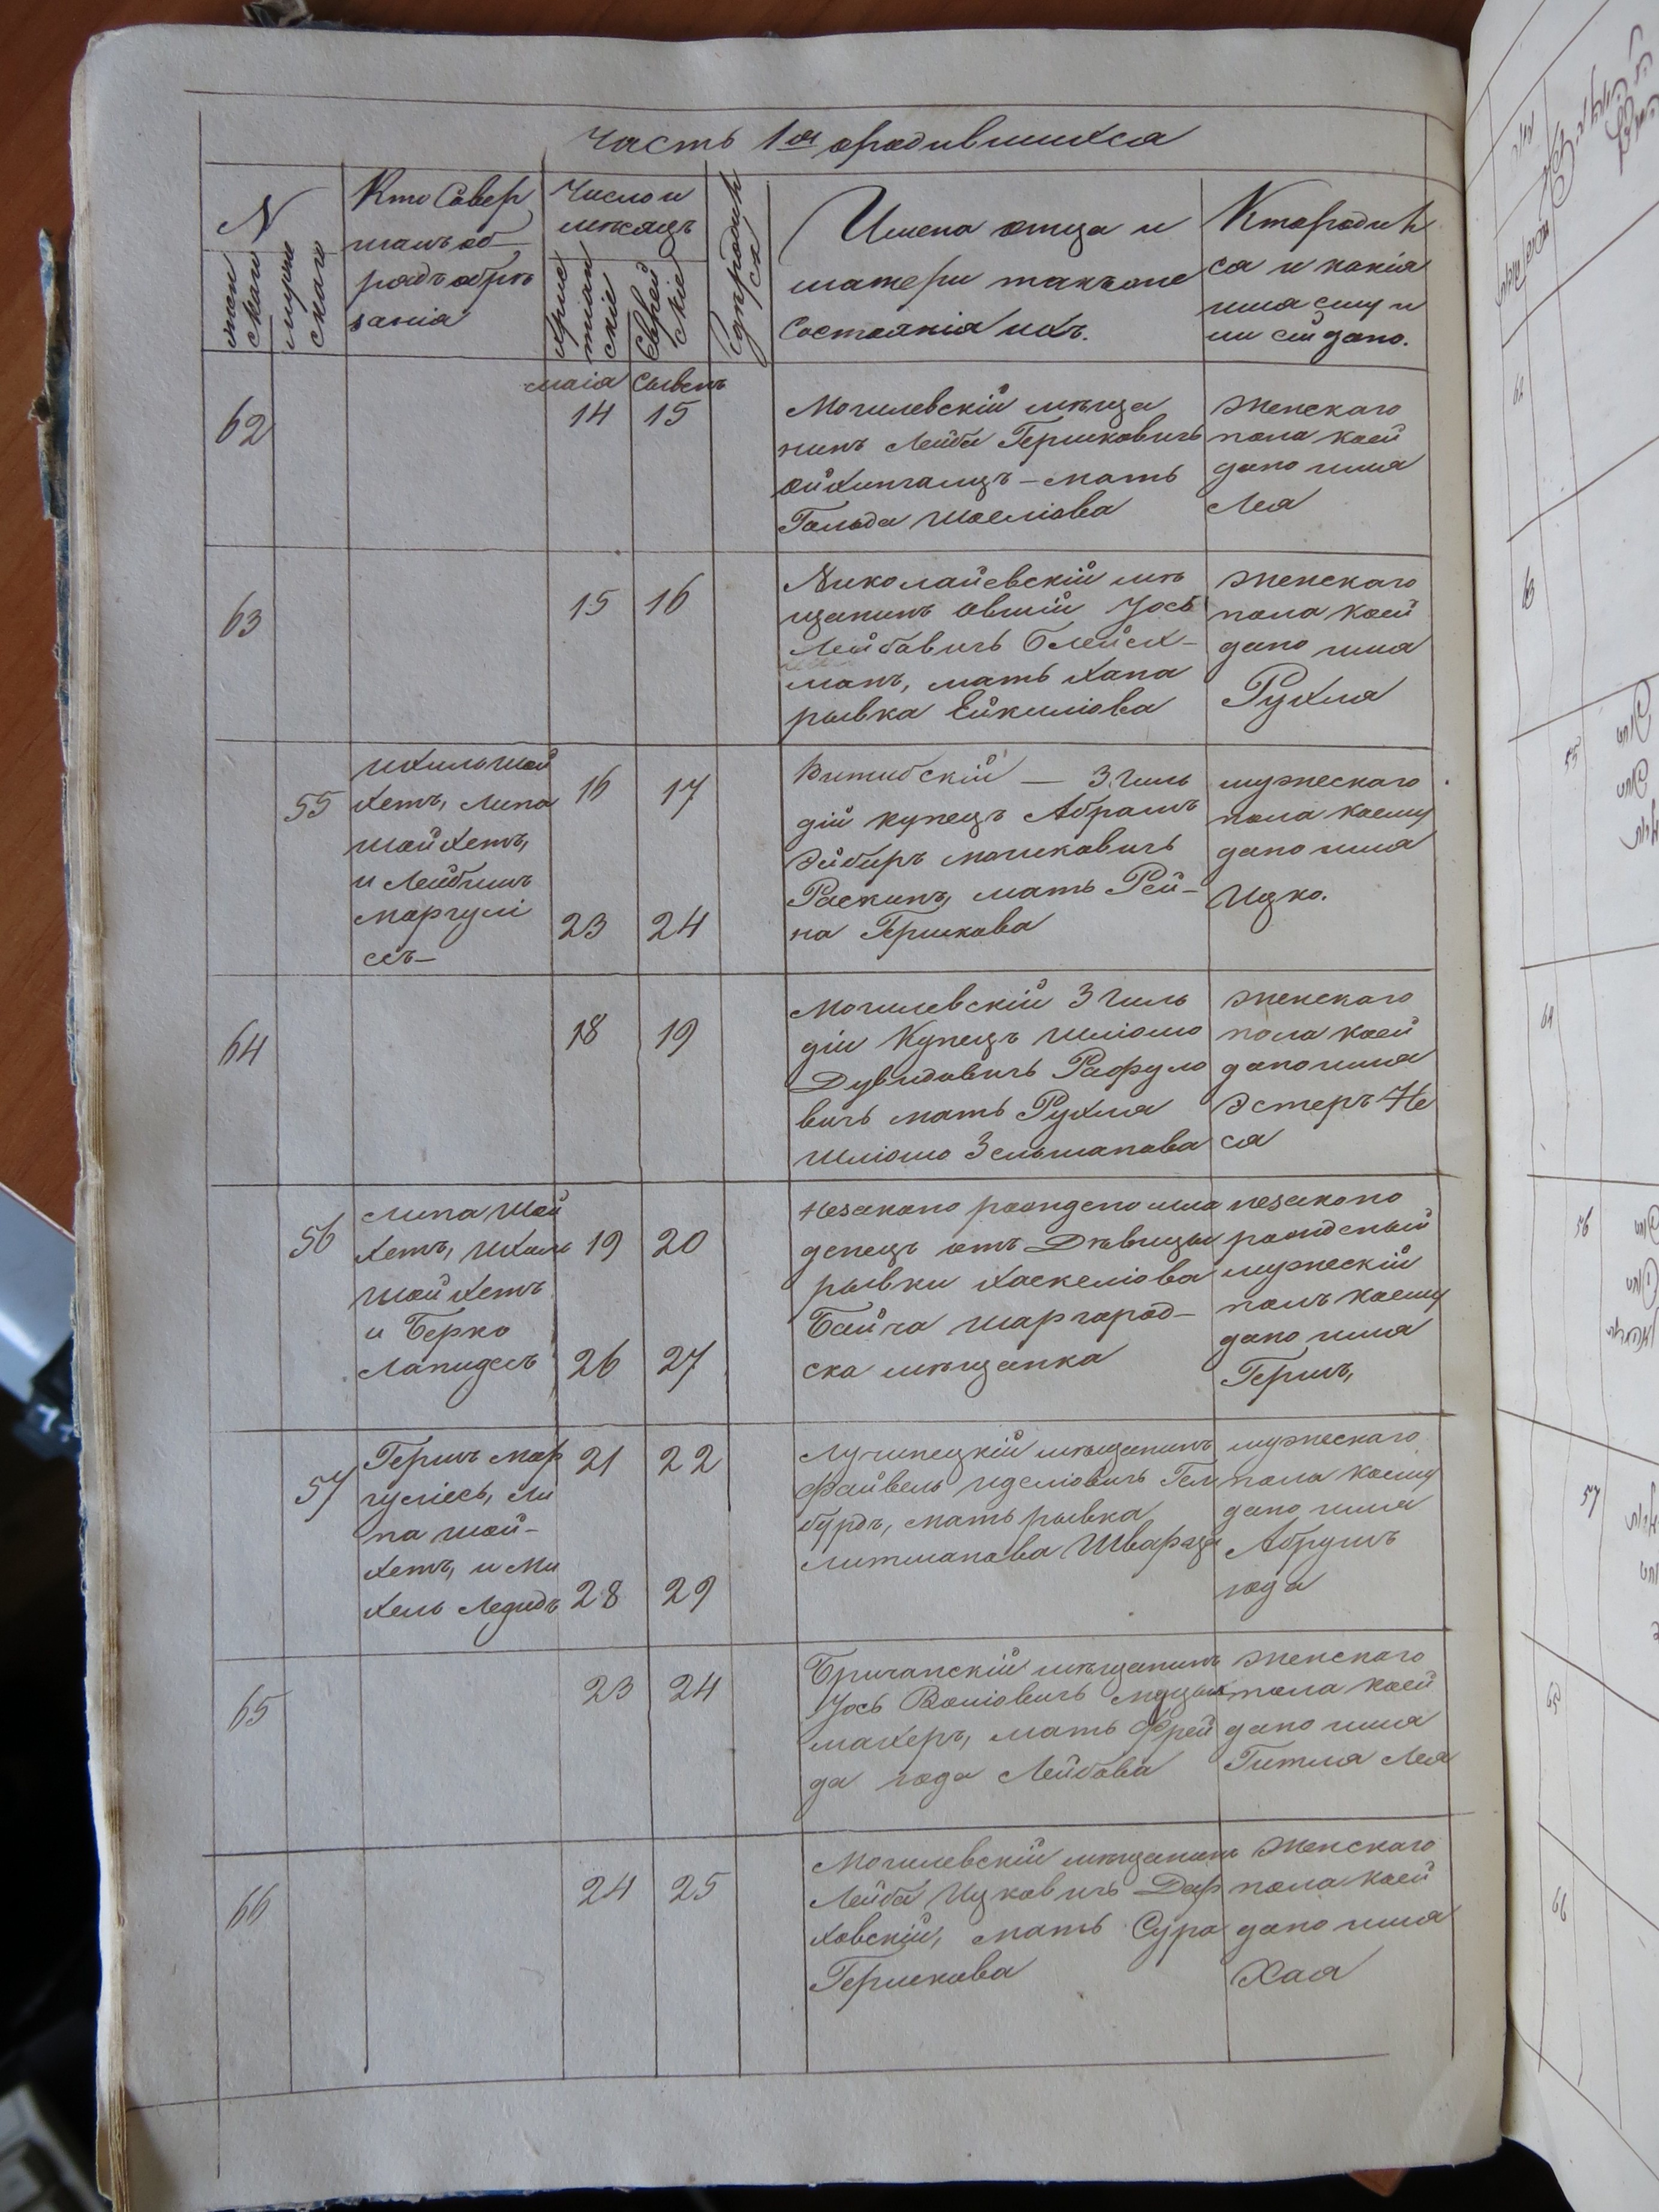 Часть 1ая ородившихся
N
женскаго
мужескаго
Кто Совер
шалъ об
рядъ обрѣ
занія
Число и
мѣсяцъ
Христіанскіе
Еврейскіе
Гдѣ родился
Имена отца и
матери такъже
Состоянія ихъ.
Кто родил
ся и какія
имя ему и
ли ей дано.
маія Сывенъ
62
14 15
Могилевскій мѣща
нинъ Лейба Гершковичъ
Ойхингалцъ – мать
Гольда Шоеліова
женскаго
пола коей
дано имя
Лея
63
15 16
Николаевскій мѣ
щанинъ Овшій Іось
Лейбавичъ Олейсх-
манъ, мать Хана
рывка Ейкиліова
женскаго
пола коей
дано имя
Рухля
55
Ихиль Шой
хетъ, Липа
Шойхетъ,
и Лейбишъ
Маргулі
есъ –
16 17
23 24
Витибскій – 3 Гиль
дій купецъ Абрамъ
Эйбиръ Мошковичъ
Раскинъ, мать Рей-
на Гершкова
мужескаго
пола коему
дано имя
Ицко.
64
18 19
Могилевскій 3 Гиль
діи Купецъ Шліомо
Дувидовичъ Рафуло
вичъ мать Рухля
Шліомо Зельманова
женскаго
пола коей
дано имя
Эстеръ Не
ся
56
Липа Шой
хетъ, Ихиль
Шойхетъ
и Берко
Лапидесъ
19 20
26 27
Незакано рождено мла
денецъ отъ Дѣвицы
рывки Хаскеліова
Байча Шаргород-
ска мѣщанка
незаконо
рожденый
мужескій
полъ коему
дано имя
Гершъ,
57
Гершъ Мар
гуліесъ, Ли
па Шой-
хетъ, и Ми
хель Ледидъ
21 22
28 29
Лучинецкій мѣщанинъ
Файвель Иделіовичъ Гел
бурдъ, мать рывка
Литманова Шварца
мужескаго
пола коему
дано имя
Абрумъ
года
65
23 24
Бричанскій мѣщанинъ
Іось Воліовичъ
махеръ, мать Фрей
да года Лейбова
женскаго
пола коей
дано имя
Гитля Лея
66
24 25
Могилевскій мѣщанинъ
Лейба Ицковичъ Дар
ховскій, мать Сура
Гершкова
женскаго
пола коей
дано имя
Хая